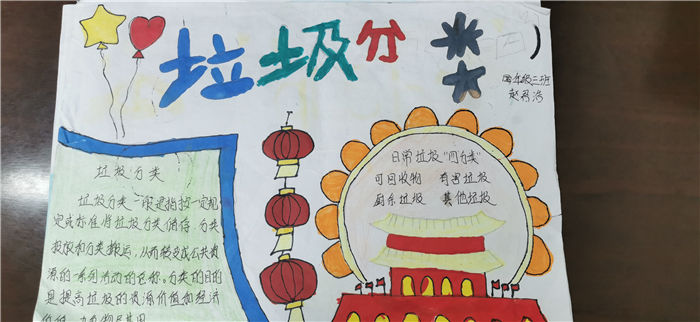 垃圾分类
四年级三班
垃圾分类
垃圾分类一般是指按一定规
定或标准将垃圾分类储存、分类
投放和分类搬运,从而转变成公共资
源的一系列活动的总称。分类的目的
是提高垃圾的资源价值和经济
价值,力争物尽其用
日常垃圾"四分类"
可回收物 有害垃圾
厨余垃圾 其他垃圾